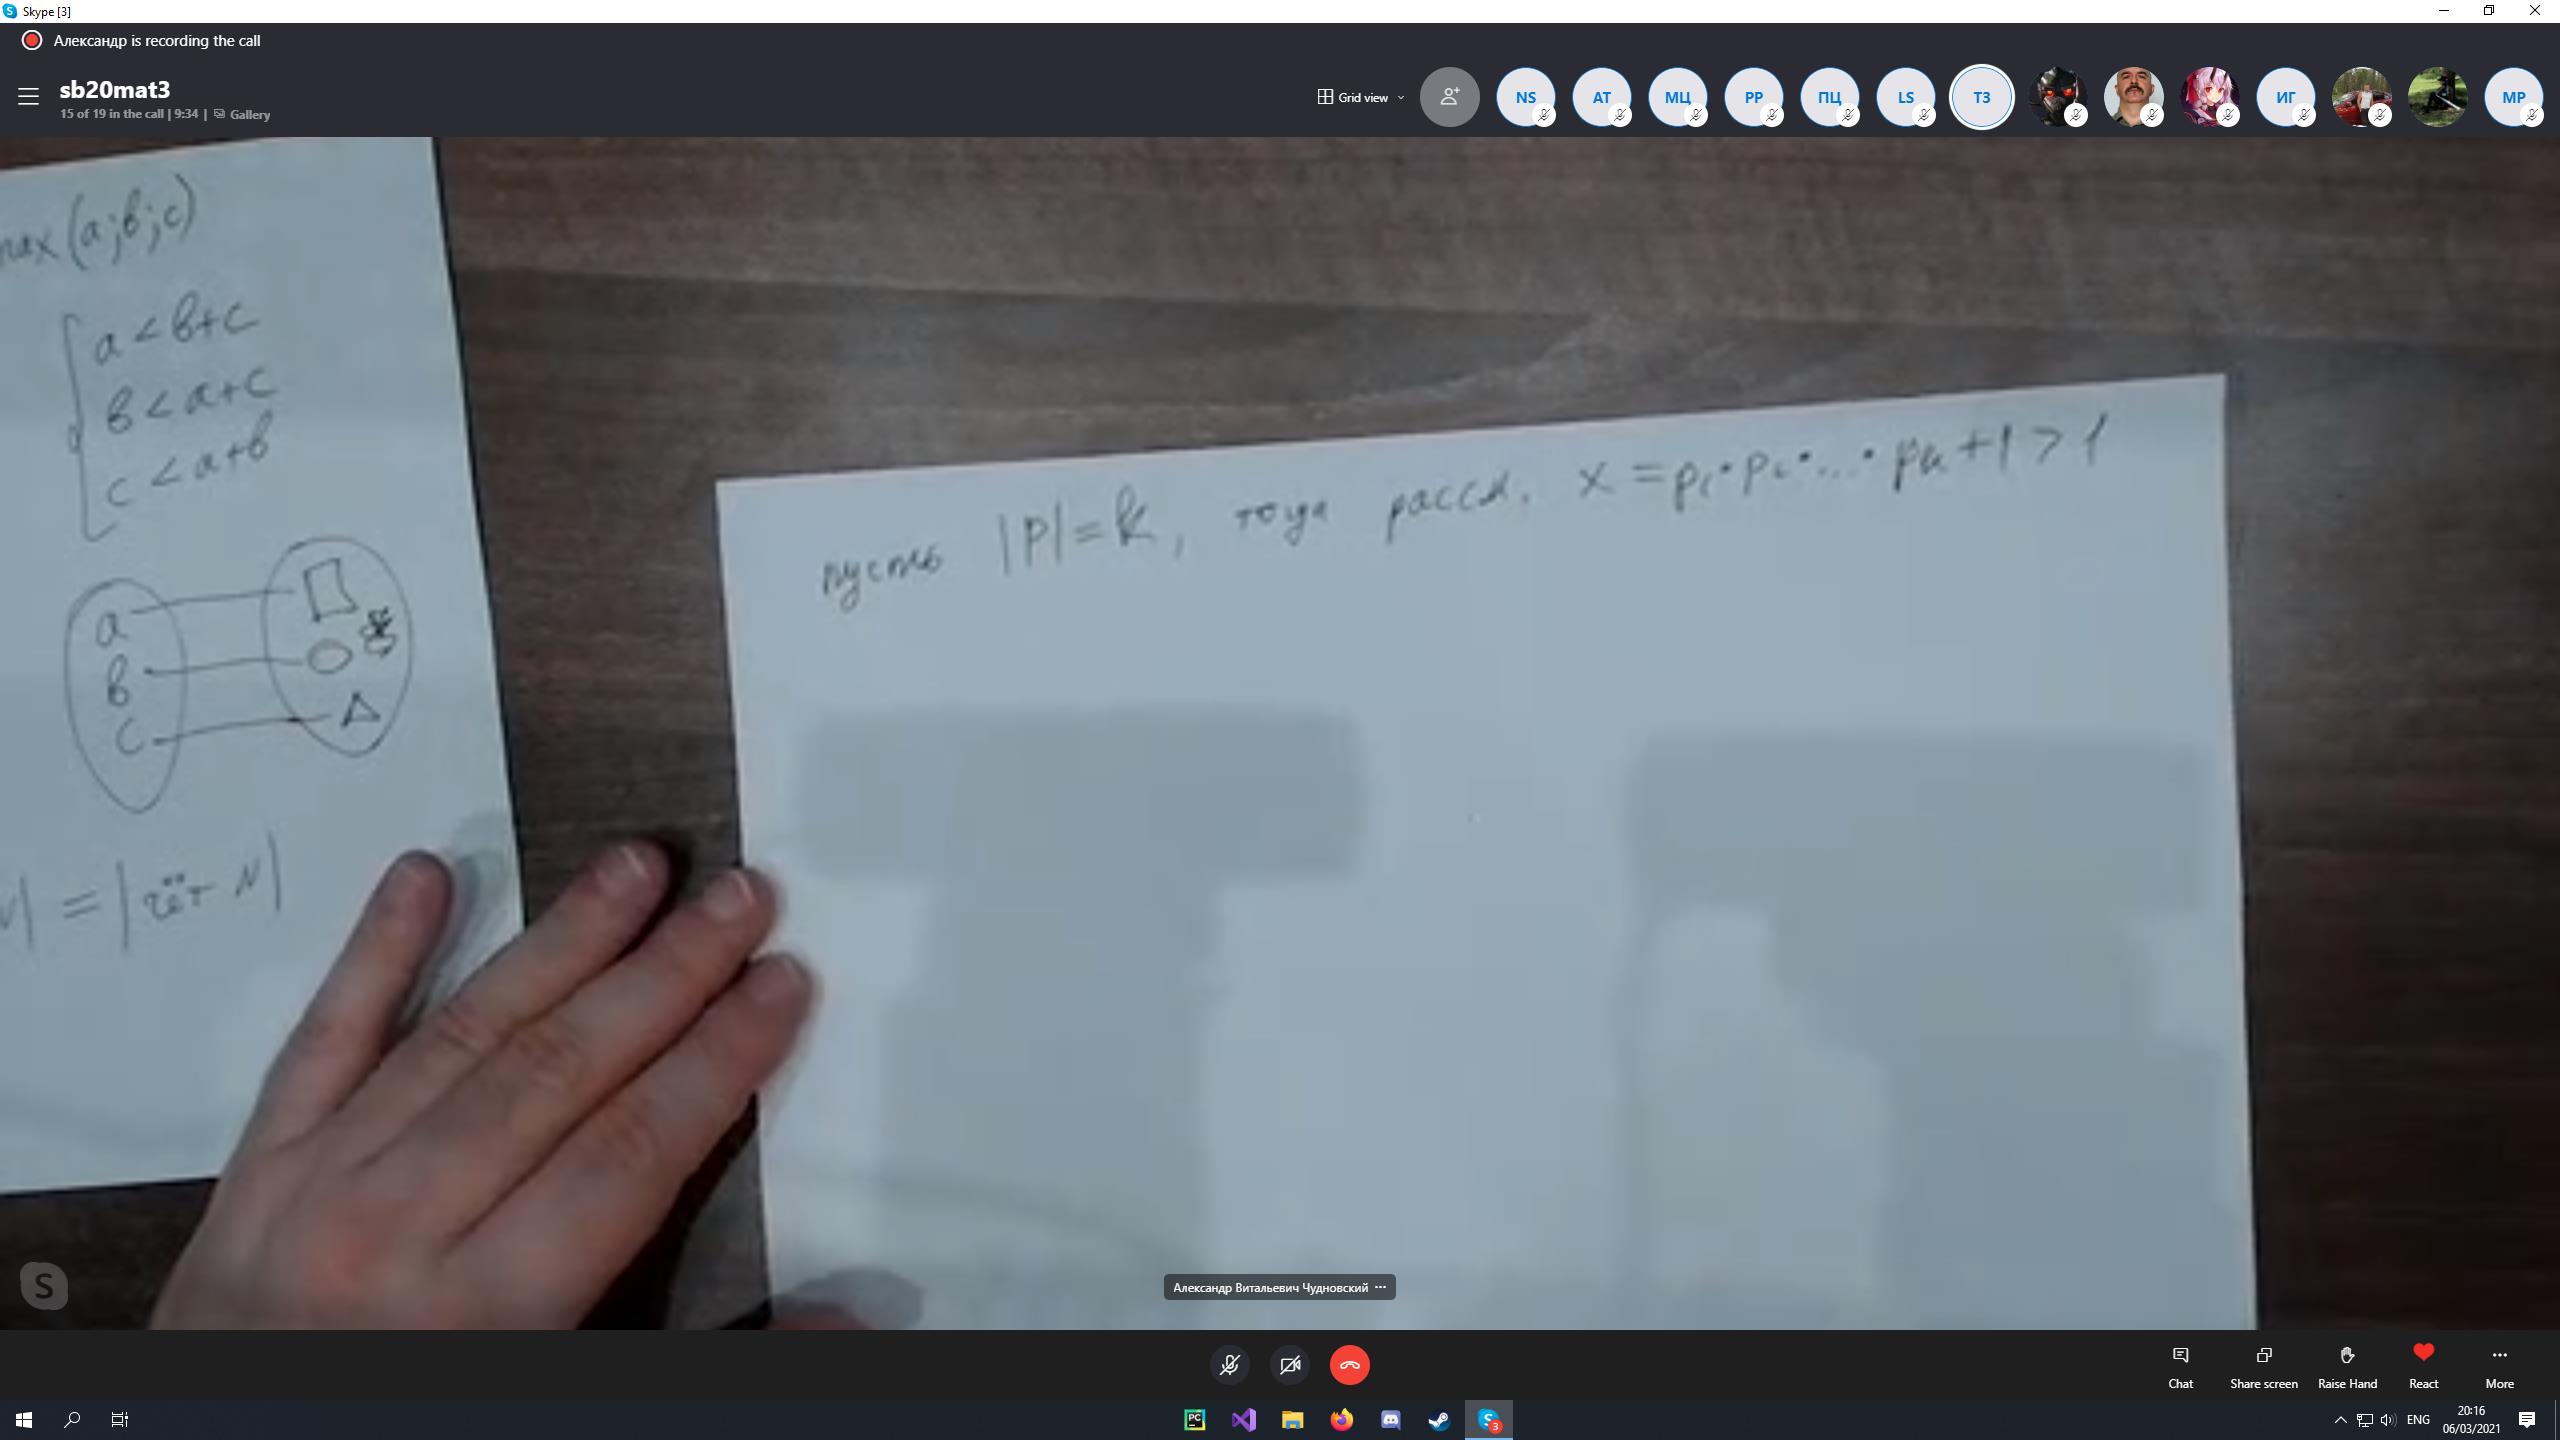 Skype [3]
Александр is recording the call
sb20mat3
15 of 19 in the call | 9:34 | Gallery
Grid view
NS
AT
МЦ
PP
ПЦ
LS
ТЗ
ИГ
MP
max(a;b;c)
a < b+c
b < a+c
c < a+b
a
b
c
| = |чёт N|
пусть |P|=k, тогда рассм. x = p₁·p₂·...·pₖ+1 > 1
S
Александр Витальевич Чудновский ...
Chat
Share screen
Raise Hand
React
More
PC
S
3
ENG
20:16
06/03/2021